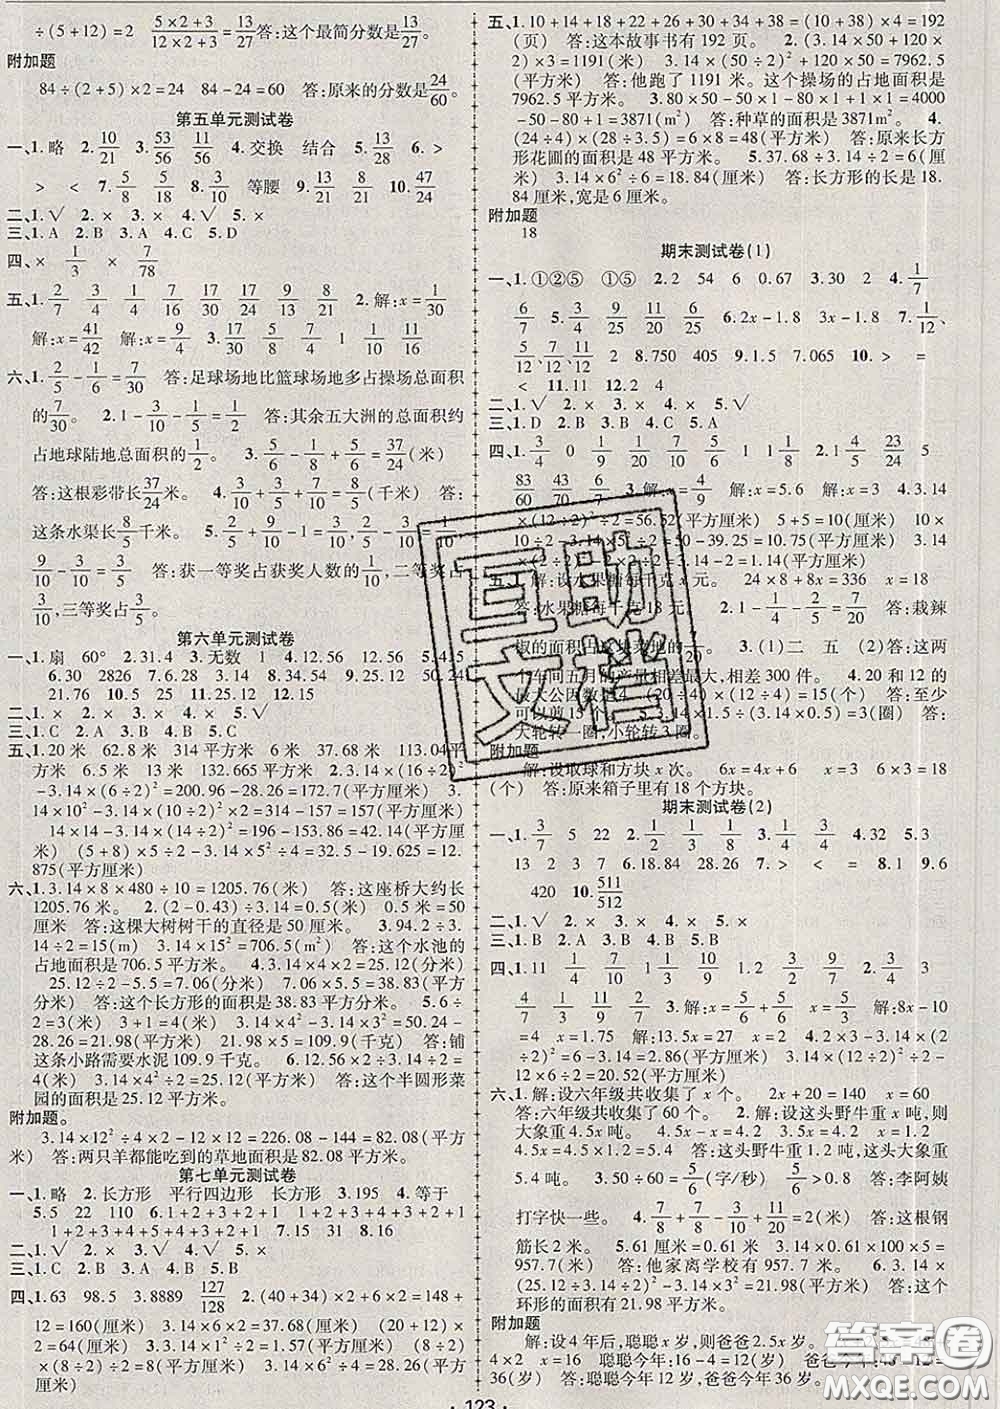 ÷(5+12)=2 (5×2+3)/(12×2+3)=13/27答:这个最简分数是13/27。
附加题
84÷(2+5)×2=24 84-24=60 答:原来的分数是24/60。
第五单元测试卷
一、1.略 2.10/21 3.53/56 11/56 4.交换 结合 5.13/28 6.>
> < 7.5/8 5/18 8.3/10 等腰 9.13/21 8/21 10.47/24
二、1.√ 2.× 3.× 4.√ 5.×
三、1.A 2.B 3.A 4.C 5.D
四、× 1/3 × 7/78
五、1.2/7 3/4 1/4 17/16 17/30 9/8 13/21 2.解:x=1/30
解:x=41/42 解:x=9/4 3.17/30 5/9 3/4 1/4 8/5
六、1.2/5-1/6=7/30 答:足球场地比篮球场地多占操场总面积
的7/30。 2.1-3/10-1/5=1/2 答:其余五大洲的总面积约
占地球陆地总面积的1/2。 3.5/6-1/8+5/6=37/24(米)
答:这根彩带长37/24米。 4.3/10+3/5+7/10=8/5(千米) 答:
这条水渠长8/5千米。 5.2/5+9/10-1=3/10
9/10-3/10=3/5 答:获一等奖占获奖人数的1/10,二等奖占
3/10,三等奖占3/5。
第六单元测试卷
一、1.扇 60° 2.31.4 3.无数 1 4.12.56 12.56
6.30 2826 7.6.28 8.3.14 9.10.28
21.76 10.5 11.25 12.15
二、1.× 2.× 3.× 4.× 5.√
三、1.C 2.B 3.B 4.C 5.A
五、1.20米 62.8米 314平方米 6米 37.68米 113.04平
方米 6.5米 13米 132.665平方米 2.3.14×(16÷2)²
-3.14×(6÷2)²=200.96-28.26=172.7(平方厘米) 3.
3.14×10²-3.14×(10÷2)²×2=314-157=157(平方厘米)
14×14-3.14×(14÷2)²=196-153.86=42.14(平方厘
米) (5+8)×5÷2-3.14×5²÷4=32.5-19.625=12.
875(平方厘米)
六、1.3.14×8×480÷10=1205.76(米) 答:这座桥大约长
1205.76米。 2.(2-0.43)÷3.14=0.5(米) 0.5米=50
厘米 答:这棵大树树干的直径是50厘米。 3.94.2÷3.
14÷2=15(m) 3.14×15²=706.5(m²) 答:这个水池的
占地面积是706.5平方米。 4.3.14×4×2=25.12(分米)
25.12÷2-5.5=7.06(分米) 7.06×5.5=38.83(平方分
米) 答:这个长方形的面积是38.83平方分米。 5.6÷
2=3(米) 3+1=4(米) 3.14×4²-3.14×3²=50.24-
28.26=21.98(平方米) 21.98×5=109.9(千克) 答:铺
这条小路需要水泥109.9千克。 6.12.56×2÷3.14÷2
=4(米) 3.14×4²÷2=25.12(平方米) 答:这个半圆形菜
园的面积是25.12平方米。
附加题。
3.14×12²÷4×2-12×12=226.08-144=82.08(平方
米) 答:两只羊都能吃到的草地面积是82.08平方米。
第七单元测试卷
一、1.略 2.长方形 平行四边形 长方形 3.195 4.等于
5.5 22 110 6.1+2+3+2+1 1+2+3+4+3+2+1
1+2+3+4+5+4+3+2+1 7.15 31 8.16
二、1.√ 2.× 3.× 4.√ 5.×
三、1.C 2.B 3.A 4.B 5.C
四、1.63 98.5 3.8889 127/128 2.(40+34)×2×6=148+
12=160(厘米) (8÷2)×(8÷2)=16(厘米) (20+12)×
2=64(厘米) 11×10=110(平方厘米) (8÷2)
×(8÷2)÷2=8(平方厘米) 3.14×(4÷2)²×4=
50.24(平方米)
五、1.10+14+18+22+26+30+34+38=(10+38)×4=192
(页) 答:这本故事书有192页。 2.(3.14×50+120×
2)×3=1191(米) 3.14×(50÷2)²+120×50=7962.5
(平方米) 答:他跑了1191米。这个操场的占地面积是
7962.5平方米。 3.80×50-50×1-80×1+1×1=4000
-50-80+1=3871(m²) 答:种草的面积是3871m²。 4.
(24÷4)×(28÷3.5)=6×8=48(平方米) 答:原来长方
形花圃的面积是48平方米。 5.37.68÷3.14÷2=6(厘
米) 3.14×6²÷6=18.84(厘米) 答:长方形的长是18.
84厘米,宽是6厘米。
附加题
18
期末测试卷(1)
一、1.①②⑤ ①⑤ 2.2 54 6 0.67 3.30 2 4.1/7
6/7 5.3/25 9/25 11/20 6/25 6.2x-1.8 3x-1.8 7.1/12、
5/12、7/12、2 8.750 405 9.1.5 7.065 10.> =
< 11.11 12.2 4
二、1.√ 2.× 3.× 4.× 5.√
三、1.D 2.B 3.B 4.C 5.A
四、1.3/4 0 1/9 1/20 7/10 7/20 7/9 1/4 2.1 5/4 23/24 5
83/60 43/70 6/7 3.解:x=4/9 解:x=5.6 解:x=8 4.3.14
×(12÷2)²÷2=56.52(平方厘米) 5+5=10(厘米) 10×
10÷2-3.14×5²÷2=50-39.25=10.75(平方厘米)
五、1.解:设水果糖每千克x元。 24×8+8x=336 x=18
答:水果糖每千克18元。 答:栽辣
椒的面积占这块菜地的7/20。 3.(1)二 五 (2)答:这两
个车间五月的产量相差最大,相差300件。 4.20和12的
最大公因数是4 (20÷4)×(12÷4)=15(个) 答:至少
可以剪15个。
大轮转一圈,小轮转3圈。
附加题
解:设取球和方块x次。 6x=4x+6 x=3 6×3=18
(个) 答:原来箱子里有18个方块。
期末测试卷(2)
一、1.3/7 5 22 2.1/2 1/3 1/8 3.7/4 7/4 4.32 5.3
13 2 3 7 6.18.84 28.26 7.> < = 8.1 9.6
420 10.511/512
二、1.√ 2.× 3.× 4.√ 5.×
三、1.B 2.A 3.C 4.C 5.A
四、1.11 1/4 7/10 1/9 1 3/10 7/24 1/8 2.2 3/4 3
9/7 1/2 2/5 3.解:x=5/6+5/6 x=5/3 解:8x-10
=4 x=1.75 解:27x=54 x=2 4.2×3-3.14×(2
÷2)²=6-3.14=2.86(平方厘米) 3.14×(12÷2)²-
12×6÷2=20.52(平方厘米)
六、1.解:设六年级共收集了x个。 2x+20=140 x=60
答:六年级共收集了60个。 2.解:设这头野牛重x吨,则
大象重4.5x吨。 4.5x-x=4.2 x=1.2
4.5x=4.5×1.2=5.4 答:这头野牛重1.2吨,这头大象重
5.4吨。 3.50÷60=5/6(字/秒) 5/6>0.8 答:李阿姨
打字快一些。 4.7/8+7/8-3/10+11/20=2(米) 答:这根钢
筋长2米。 5.61厘米=0.61米 3.14×0.61×100×5=
957.7(米) 答:他家离学校有957.7米。 6.3.14×
(25.12÷3.14÷2)²-3.14×3²=21.98(平方厘米) 答:这个
环形的面积有21.98平方厘米。
附加题
解:设4年后,聪聪x岁,则爸爸2.5x岁。
4×2 x=16 聪聪今年:16-4=12(岁) 爸爸今年:48-12=
36(岁) 答:聪聪今年12岁,爸爸今年36岁。
· 123 ·
互助文档
答案圈
MXQE.COM